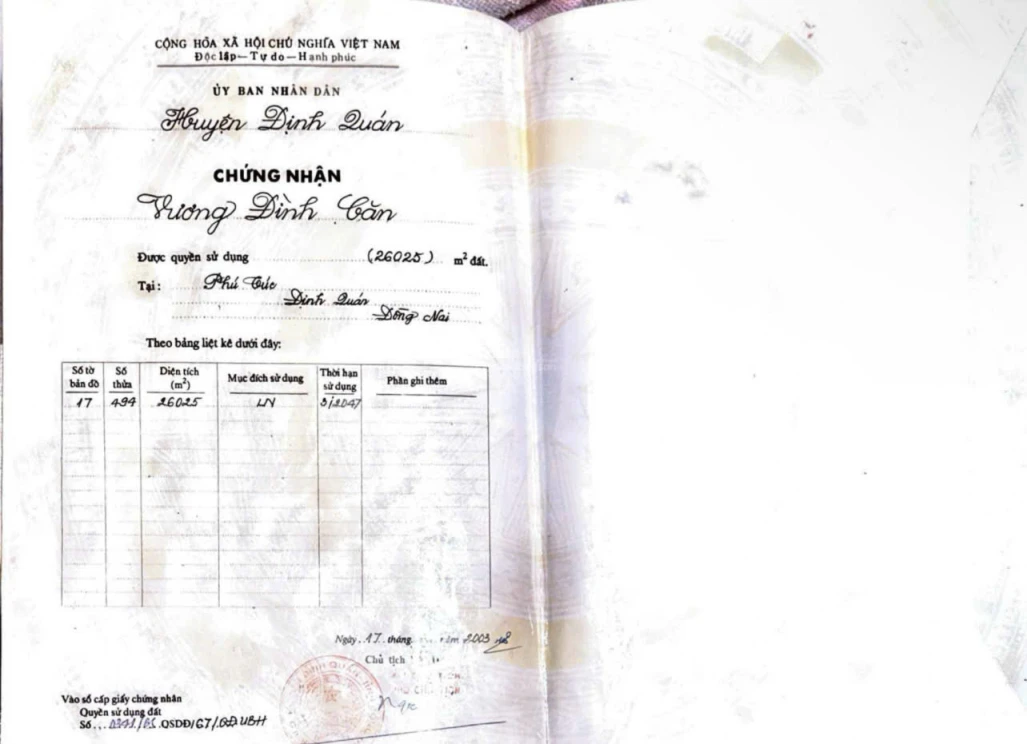 CỘNG HÒA XÃ HỘI CHỦ NGHĨA VIỆT NAM
Độc lập — Tự do — Hạnh phúc
ỦY BAN NHÂN DÂN
Huyện Định Quán
CHỨNG NHẬN
Vương Đình Căn
Được quyền sử dụng (26025) m² đất.
Tại: Phú Túc
Định Quán
Đồng Nai
Theo bảng liệt kê dưới đây:
Số tờ bản đồ Số thửa Diện tích (m²) Mục đích sử dụng Thời hạn sử dụng Phần ghi thêm
17 494 26025 LN 3/2047
Ngày 17 tháng năm 2003
Chủ tịch
Vào sổ cấp giấy chứng nhận
Quyền sử dụng đất
Số QSDĐ/G7/QĐ.UBH